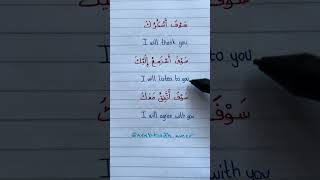 سَوْفَ أَشْكُرُكَ
I will thank you
سَوْفَ أَسْتَمِعُ إِلَيْكَ
I will listen to you
سَوْفَ أَتَّفِقُ مَعَكَ
I will agree with you